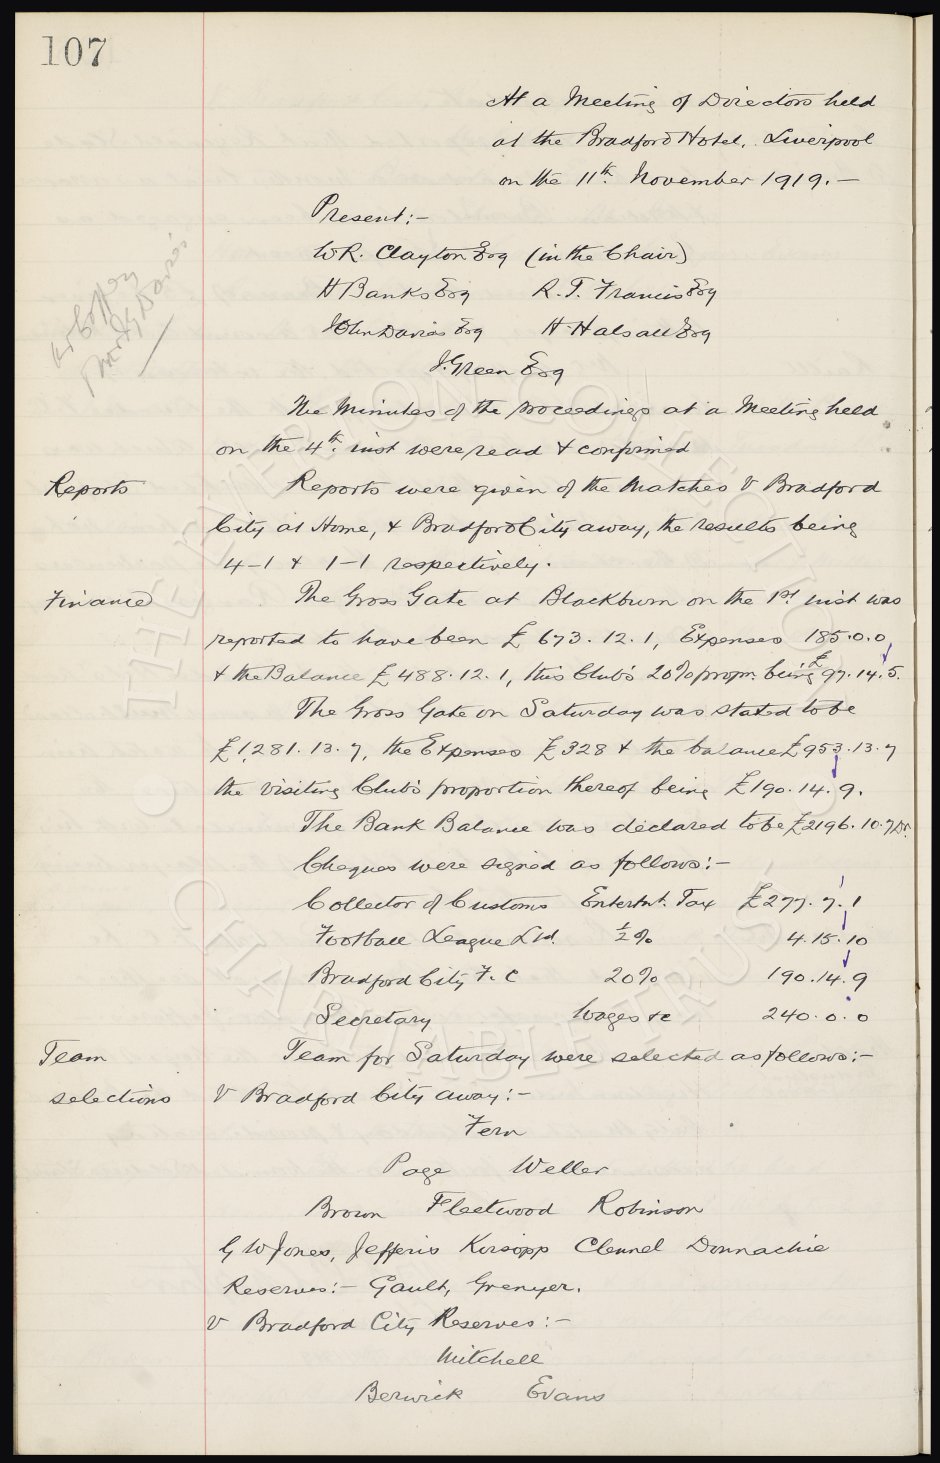 107
At a Meeting of Directors held
at the Bradford Hotel, Liverpool
on the 11th. November 1919. —
Present:—
W R. Clayton Esq (in the Chair)
H Banks Esq R. T. Francis Esq
John Davies Esq H. Halsall Esq
J. Green Esq
The Minutes of the proceedings at a Meeting held
on the 4th. inst were read & confirmed
Reports Reports were given of the Matches V Bradford
City at Home, & Bradford City away, the results being
4–1 & 1–1 respectively.
Finance The Gross Gate at Blackburn on the 1st inst was
reported to have been £673. 12. 1, Expenses 185.0.0
& the Balance £488. 12. 1, this Club's 20% propn. being £97. 14. 5.
The Gross Gate on Saturday was stated to be
£1,281. 13. 7, the Expenses £328 & the balance £953. 13. 7
the visiting Club's proportion thereof being £190. 14. 9.
The Bank Balance was declared to be £2196. 10. 7 Dr.
Cheques were signed as follows:—
Collector of Customs Entertnt. Tax £277. 7. 1
Football League Ltd. ½% 4. 15. 10
Bradford City F. C 20% 190. 14. 9
Secretary Wages &c 240. 0. 0
Team Team for Saturday were selected as follows:—
selections V Bradford City away:—
Fern
Page Weller
Brown Fleetwood Robinson
G W Jones, Jefferis Kirsopp Clennel Donnachie
Reserves:— Gault, Grenyer.
v Bradford City Reserves:—
Mitchell
Berwick Evans